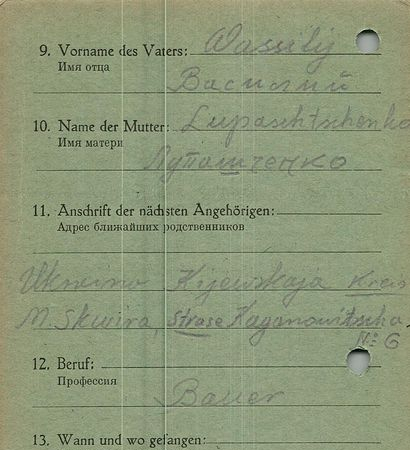 9. Vorname des Vaters: Wassilij
Имя отца
Василий
10. Name der Mutter: Lupaschtschenko
Имя матери
Лупашченко
11. Anschrift der nächsten Angehörigen:
Адрес ближайших родственников
Ukraina Kijewskaja Kreis
M. Skwira, Strase Kaganowitscha
№ 6
12. Beruf:
Профессия
Bauer
13. Wann und wo gefangen: